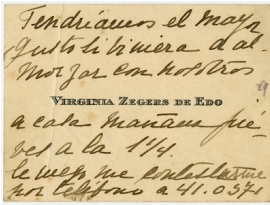 Tendríamos el mayor
gusto si viniera d al-
morzar con nosotros
VIRGINIA ZEGERS DE EDO
a casa mañana jue-
ves a la 1 1/4.
le ruego me contestarme
por teléfono a 41.037